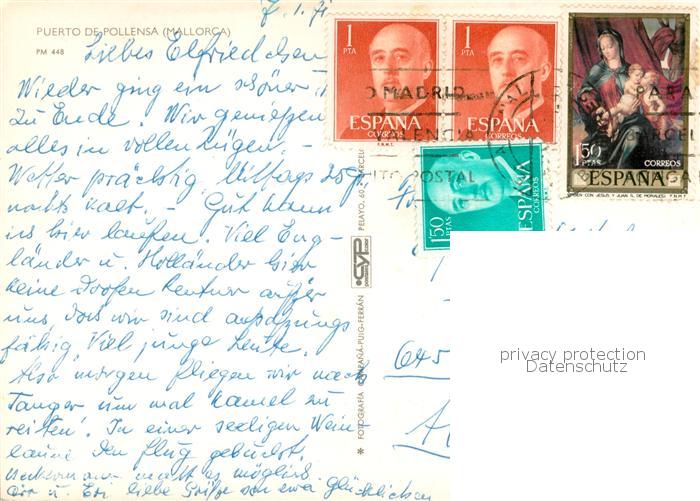 7.1.71
PUERTO DE POLLENSA (MALLORCA)
PM 448
Liebes Elfriedchen
Wieder ging ein schöner
zu Ende. Wir genießen
alles in vollen Zügen.
Wetter prächtig, Mittags 25°
nachts kalt. - Gut kann
hier laufen. Viel Eng-
länder u. Holländer hier
keine doofen Rentner außer
uns, doch wir sind anpassungs
fähig. Viel junge Leute.
Also morgen fliegen wir nach
Tanger um mal Kamel zu
reiten! In einer seeligen Wein-
laune den Flug gebucht.
Neckermann macht es möglich.
liebe Grüße von
1 PTA
ESPAÑA
CORREOS
F.N.M.T.
1 PTA
ESPAÑA
CORREOS
F.N.M.T.
1'50 PTAS
CORREOS
ESPAÑA
1'50 PTAS
ESPAÑA
CORREOS
MADRID
VALENCIA
POSTAL
PARA
PELAYO, 60
CYP
* FOTOGRAFÍA CAMPAÑÁ-PUIG-FERRÁN
645
privacy protection
Datenschutz